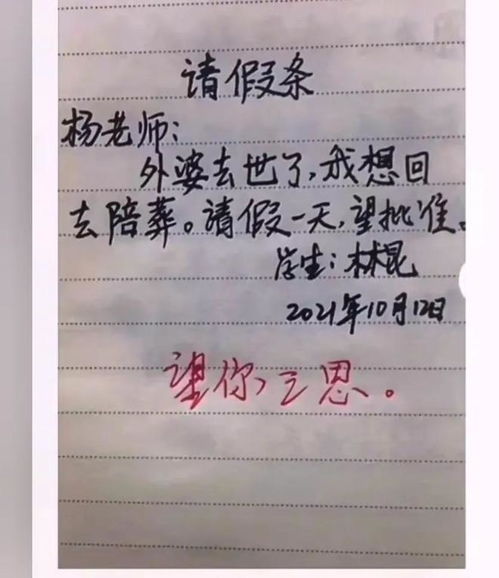 请假条
杨老师：
外婆去世了，我想回
去陪葬。请假一天，望批准。
学生：林昆
2021年10月12日
望你三思。